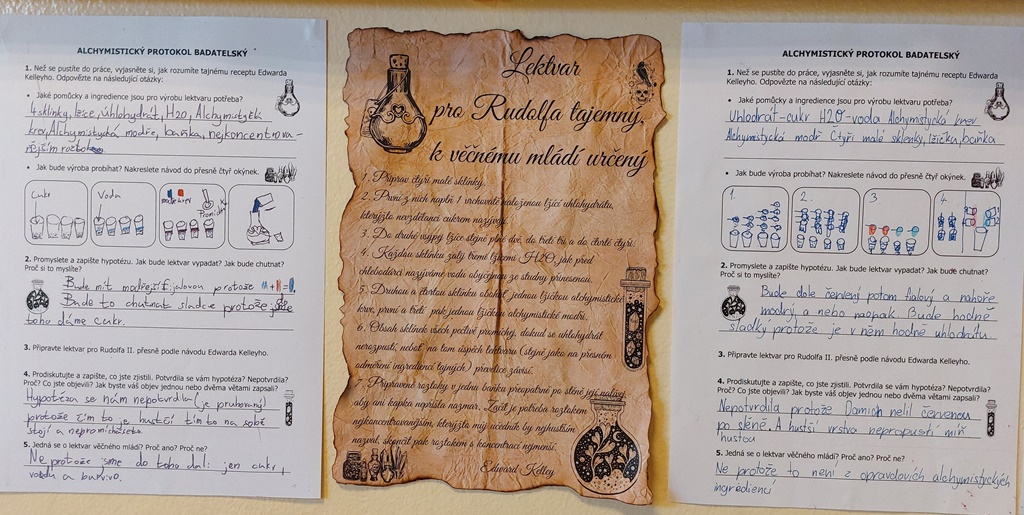 ALCHYMISTICKÝ PROTOKOL BADATELSKÝ
1. Než se pustíte do práce, vyjasněte si, jak rozumíte tajnému receptu Edwarda
Kelleyho. Odpovězte na následující otázky:
• Jaké pomůcky a ingredience jsou pro výrobu lektvaru potřeba?
4 sklinky, lžíce, úhlohydrát, H2O, Alchymistická
krev, Alchymistycká modře, baňka, nejkoncentrova-
nějším roztok
• Jak bude výroba probíhat? Nakreslete návod do přesně čtyř okýnek.
Cukr
Voda
modř krev
Promíchat
2. Promyslete a zapište hypotézu. Jak bude lektvar vypadat? Jak bude chutnat?
Proč si to myslíte?
Bude mít modřejší fijalovou protože + =
Bude to chutnat sladce protože
toho dáme cukr.
3. Připravte lektvar pro Rudolfa II. přesně podle návodu Edwarda Kelleyho.
4. Prodiskutujte a zapište, co jste zjistili. Potvrdila se vám hypotéza? Nepotvrdila?
Proč? Co jste objevili? Jak byste váš objev jednou nebo dvěma větami zapsali?
Hypotéza se nám nepotvrdila (je pruhovaný)
protože čím to je hustčí tím to na sobě
stojí a nepromíchá se
5. Jedná se o lektvar věčného mládí? Proč ano? Proč ne?
Ne protože jsme do toho dali jen cukr,
vodu a barvivo.
Lektvar
pro Rudolfa tajemný,
k věčnému mládí určený
1. Připrav čtyři malé sklinky.
2. První z nich naplň 1 vrchovatě naloženou lžící uhlohydrátu,
kterýžto nevzdělanci cukrem nazývají.
3. Do druhé vsypej lžíce stejně plné dvě, do třetí tři a do čtvrté čtyři.
4. Každou sklinku zalij třemi lžícemi H2O, jak před
chlebodárci nazýváme vodu obyčejnou ze studny přinesenou.
5. Druhou a čtvrtou sklinku obohať jednou lžičkou alchymistické
krve, první a třetí pak jednou lžičkou alchymistické modři.
6. Obsah sklinek všech pečlivě promíchej, dokud se uhlohydrát
nerozpustí, neboť na tom úspěch lektvaru (stejně jako na přesném
odměření ingrediencí tajných) převelice závisí.
7. Připravené roztoky v jednu baňku přeopatrně po stěně její nalívej,
aby ani kapka nepřišla nazmar. Začít je potřeba roztokem
nejkoncentrovanějším, kterýžto můj učedník by nejhustším
nazval, skončit pak roztokem s koncentrací nejmenší.
Edward Kelley
ALCHYMISTICKÝ PROTOKOL BADATELSKÝ
1. Než se pustíte do práce, vyjasněte si, jak rozumíte tajnému receptu Edwarda
Kelleyho. Odpovězte na následující otázky:
• Jaké pomůcky a ingredience jsou pro výrobu lektvaru potřeba?
Uhlodrát-cukr H2O-voda Alchymistycka krev
Alchymistycká modř Čtyři malé sklenky, lžička, baňka
• Jak bude výroba probíhat? Nakreslete návod do přesně čtyř okýnek.
1. 2. 3 4.
2. Promyslete a zapište hypotézu. Jak bude lektvar vypadat? Jak bude chutnat?
Proč si to myslíte?
Bude dole červený potom fialový a nahoře
modrý, a nebo naopak. Bude hodně
sladký protože je v něm hodně uhlodrátu.
3. Připravte lektvar pro Rudolfa II. přesně podle návodu Edwarda Kelleyho.
4. Prodiskutujte a zapište, co jste zjistili. Potvrdila se vám hypotéza? Nepotvrdila?
Proč? Co jste objevili? Jak byste váš objev jednou nebo dvěma větami zapsali?
Nepotvrdila protože nelil červenou
po stěně. A hustší vrstva nepropustí míň
hustou
5. Jedná se o lektvar věčného mládí? Proč ano? Proč ne?
Ne protože to není z opravdovích alchymistyckých
ingrediencí